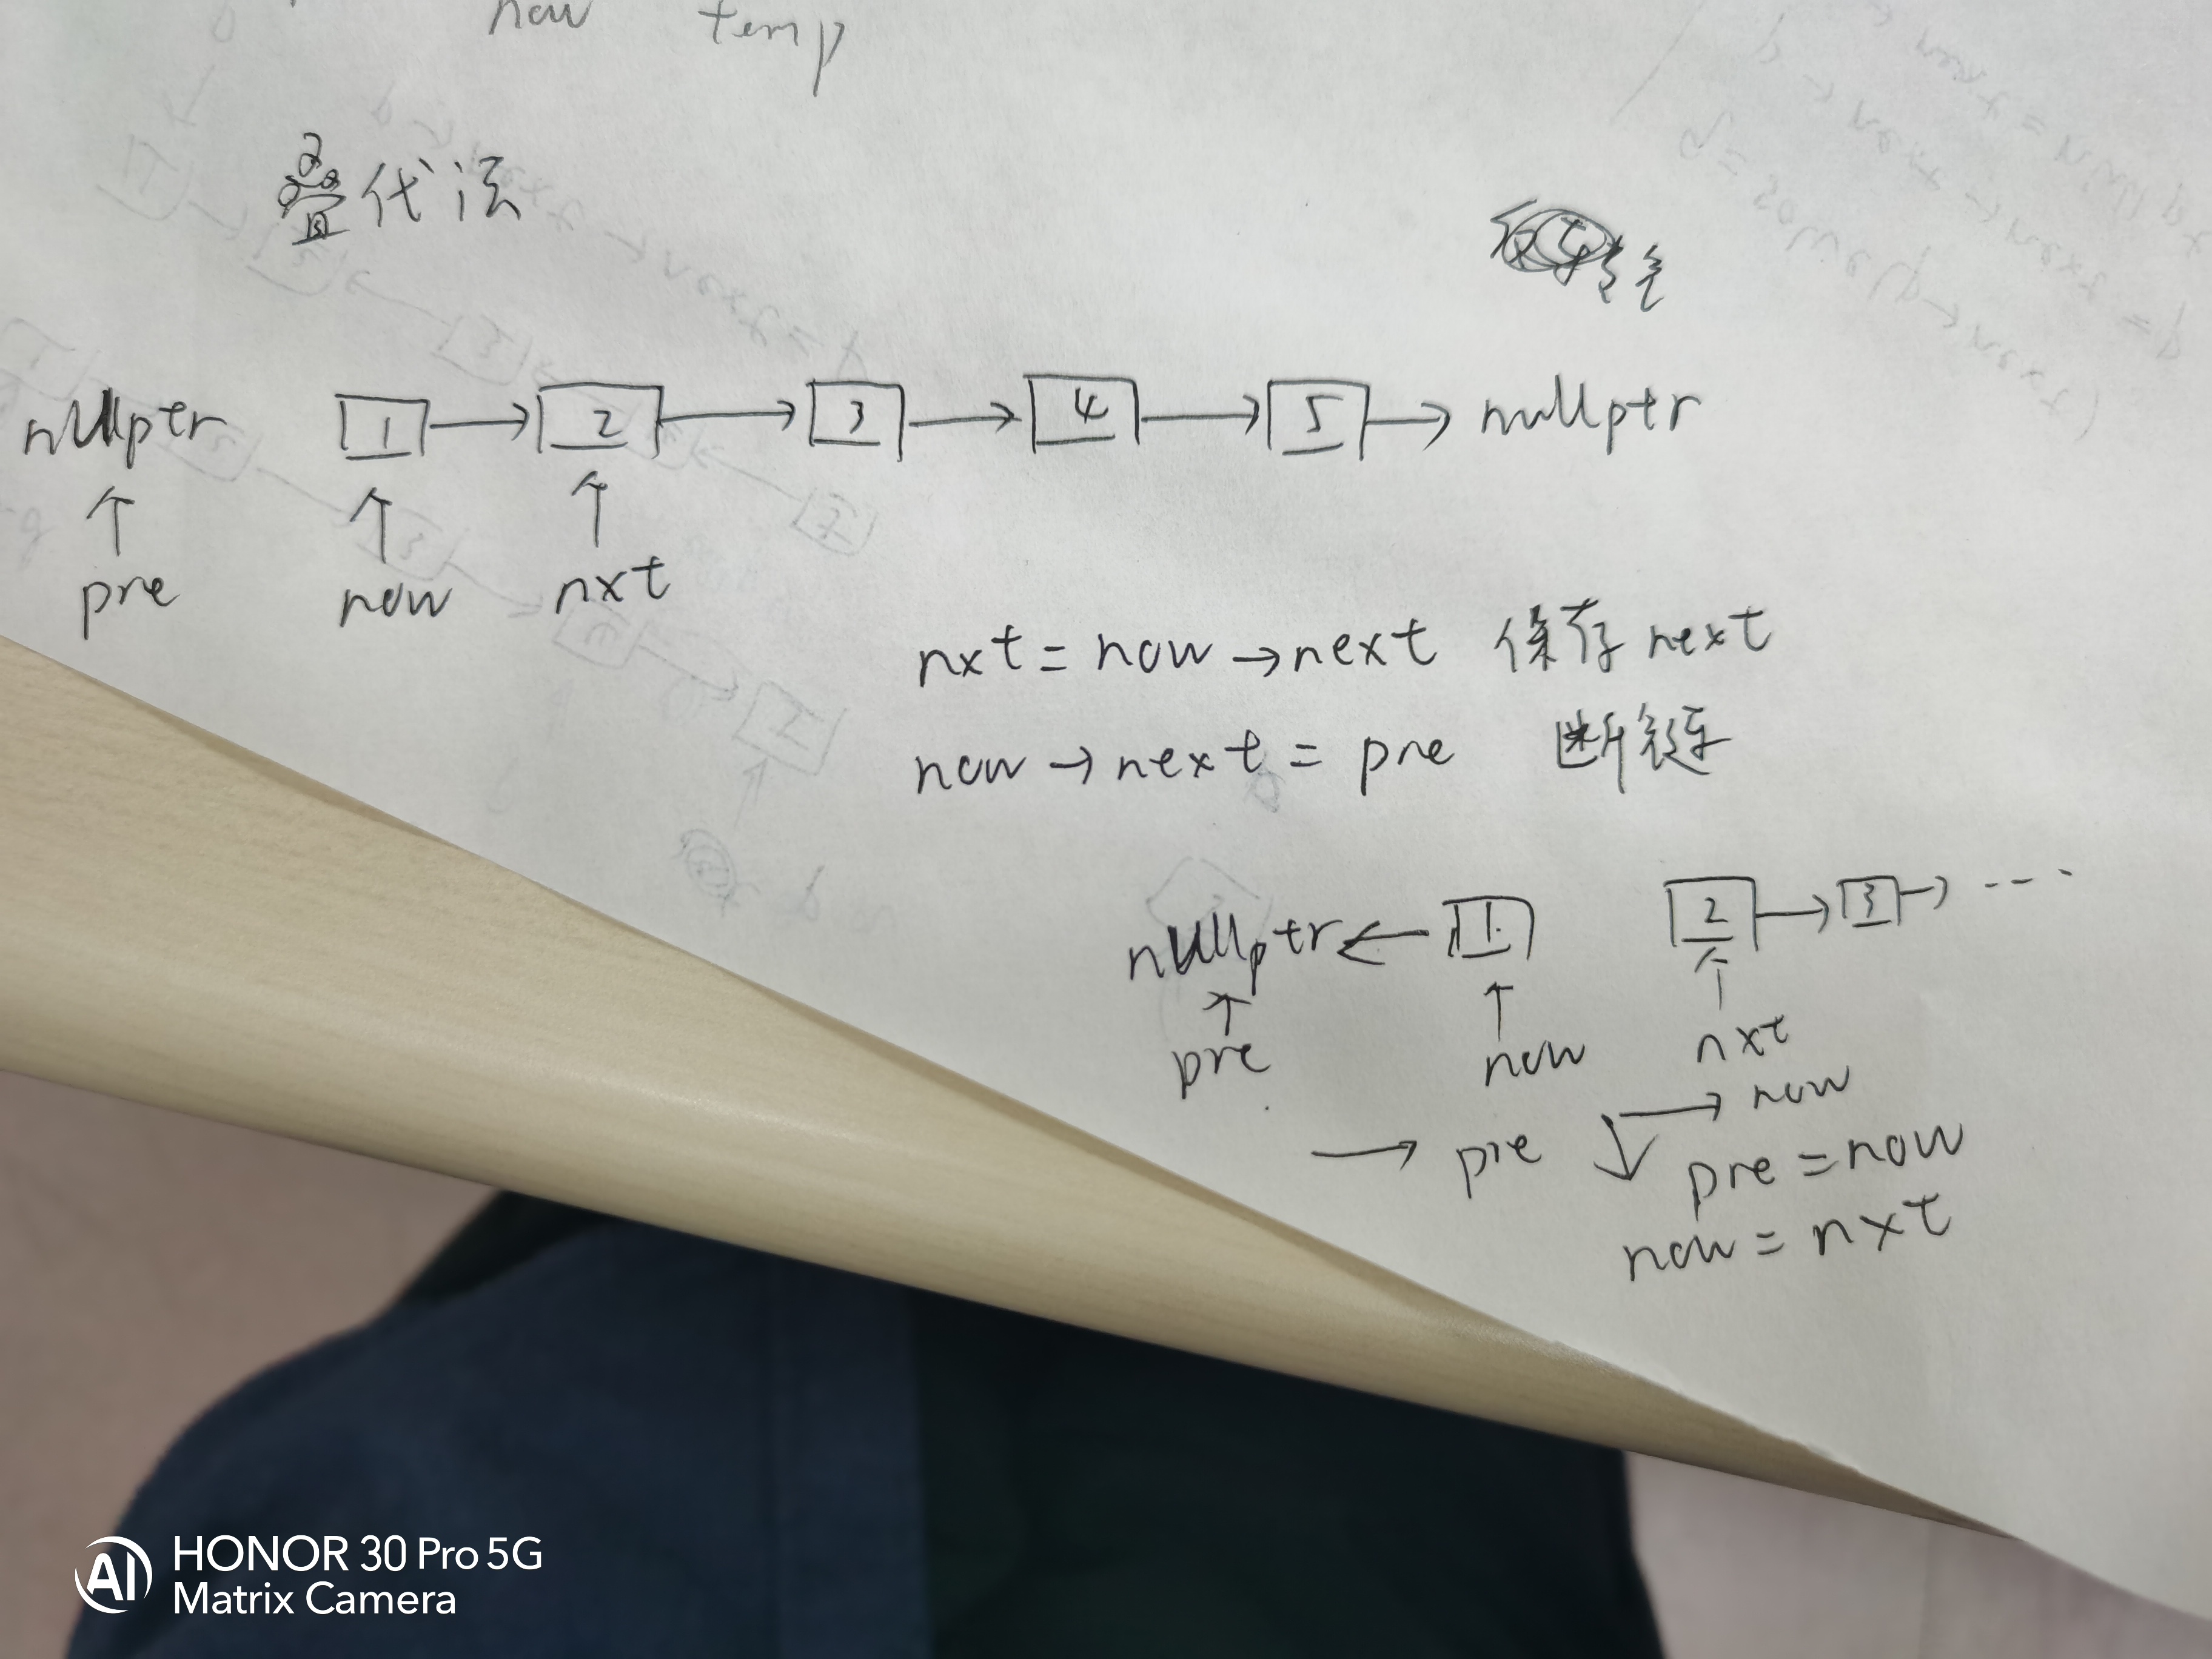 now temp
叠代法
nullptr 1 → 2 → 3 → 4 → 5 → nullptr
↑ ↑ ↑
pre now nxt
nxt = now → next 保存 next
now → next = pre 断链
nullptr ← 1 2 → 3 → ...
↑ ↑ ↑
pre now nxt
→ now
→ pre pre = now
now = nxt
HONOR 30 Pro 5G
Matrix Camera
AI